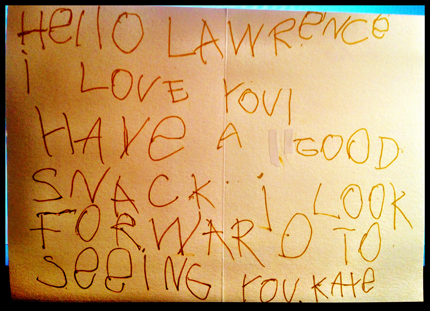 Hello LAWReNCe
i LOVE YOU!
HAVe A GOOD
SNACK. i LOOK
FORWARD TO
SeeiNG YOU. KATe